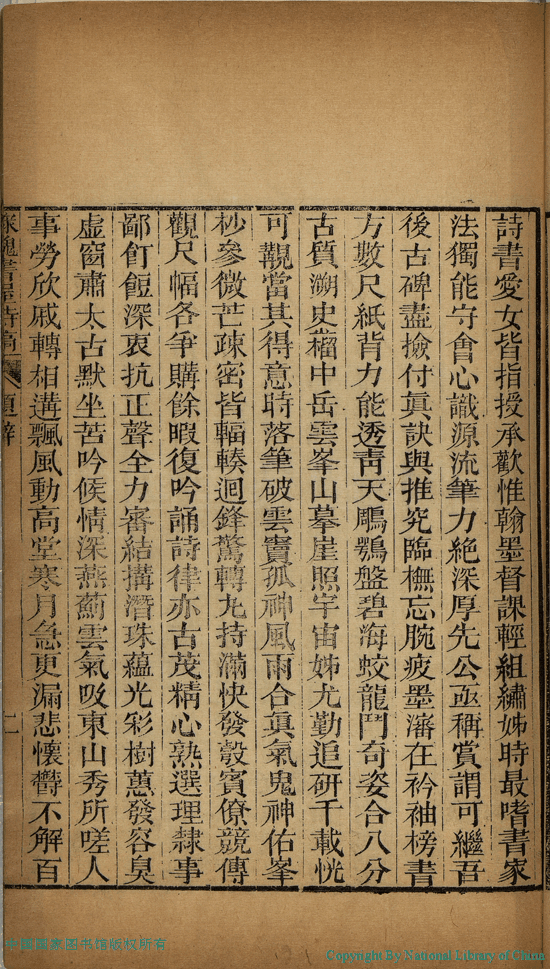 詩書愛女皆指授承歡惟翰墨督課輕組繡姊時最嗜書家
法獨能守會心識源流筆力絕深厚先公亟稱賞謂可繼吾
後古碑盡撿付眞訣與推究臨橅忘腕疲墨瀋在衿袖榜書
方數尺紙背力能透靑天鵰鶚盤碧海蛟龍鬥奇姿合八分
古質溯史籀中岳雲峯山摹崖照宇宙姊尤勤追研千載恍
可觀當其得意時落筆破雲竇孤神風雨合眞氣鬼神佑峯
杪參微芒疎密皆輻輳迴鋒驚轉丸持滿快發彀賓僚競傳
觀尺幅各爭購餘暇復吟誦詩律亦古茂精心熟選理隸事
鄙飣餖深衷抗正聲全力審結搆潛珠蘊光彩樹蕙發容臭
虛窗肅太古默坐苦吟候情深燕薊雲氣吸東山秀所嗟人
事勞欣戚轉相遘飄風動高堂寒月急更漏悲懷鬱不解百
題辭 二
中国国家图书馆版权所有
Copyright By National Library of China